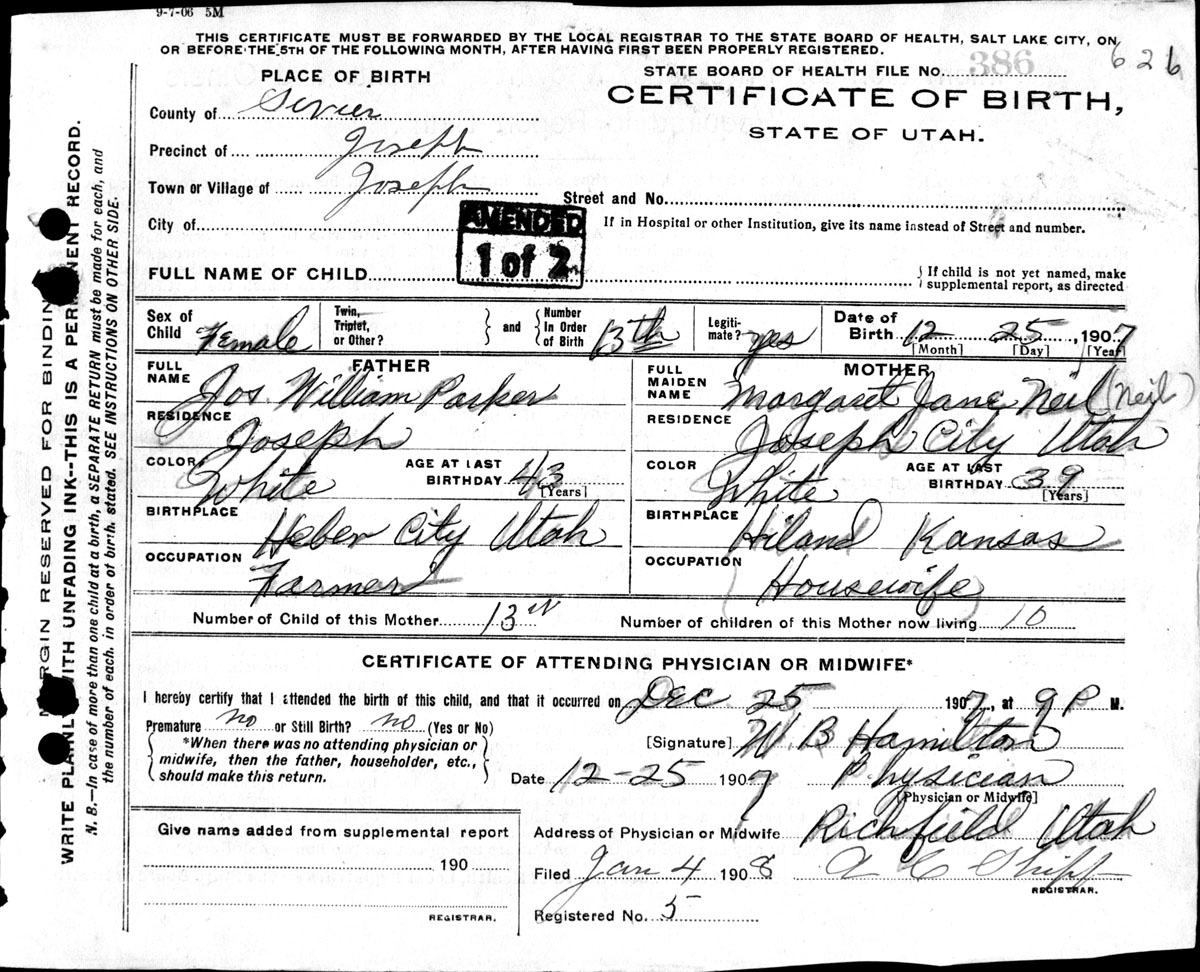 9-7-06 5M
THIS CERTIFICATE MUST BE FORWARDED BY THE LOCAL REGISTRAR TO THE STATE BOARD OF HEALTH, SALT LAKE CITY, ON
OR BEFORE THE 5TH OF THE FOLLOWING MONTH, AFTER HAVING FIRST BEEN PROPERLY REGISTERED.
626
PLACE OF BIRTH
STATE BOARD OF HEALTH FILE NO. 386
County of Sevier
CERTIFICATE OF BIRTH,
STATE OF UTAH.
Precinct of Joseph
Town or Village of Joseph
Street and No.
City of
AMENDED
1 of 2
If in Hospital or other Institution, give its name instead of Street and number.
FULL NAME OF CHILD
If child is not yet named, make
supplemental report, as directed
Sex of Child Female
Twin, Triplet, or Other?
and Number In Order of Birth 13th
Legiti-mate? yes
Date of Birth 12 25, 1907
[Month] [Day] [Year]
FATHER
FULL NAME Jos William Parker
RESIDENCE Joseph
COLOR White
AGE AT LAST BIRTHDAY 43 [Years]
BIRTHPLACE Heber City Utah
OCCUPATION Farmer
MOTHER
FULL MAIDEN NAME Margaret Jane Neil (Neil)
RESIDENCE Joseph City Utah
COLOR White
AGE AT LAST BIRTHDAY 39 [Years]
BIRTHPLACE Hiland Kansas
OCCUPATION Housewife
Number of Child of this Mother 13
Number of children of this Mother now living 10
CERTIFICATE OF ATTENDING PHYSICIAN OR MIDWIFE*
I hereby certify that I attended the birth of this child, and that it occurred on Dec 25 1907, at 9 P M.
Premature no or Still Birth? no (Yes or No)
*When there was no attending physician or
midwife, then the father, householder, etc.,
should make this return.
[Signature] W. B Hamilton
Date 12-25 1907 Physician
[Physician or Midwife]
Give name added from supplemental report
190
REGISTRAR.
Address of Physician or Midwife Richfield Utah
Filed Jan 4 1908 A C Shipp
REGISTRAR.
Registered No. 5
MARGIN RESERVED FOR BINDING
WRITE PLAINLY WITH UNFADING INK--THIS IS A PERMANENT RECORD.
N. B.—In case of more than one child at a birth, a SEPARATE RETURN must be made for each, and
the number of each, in order of birth, stated. SEE INSTRUCTIONS ON OTHER SIDE.